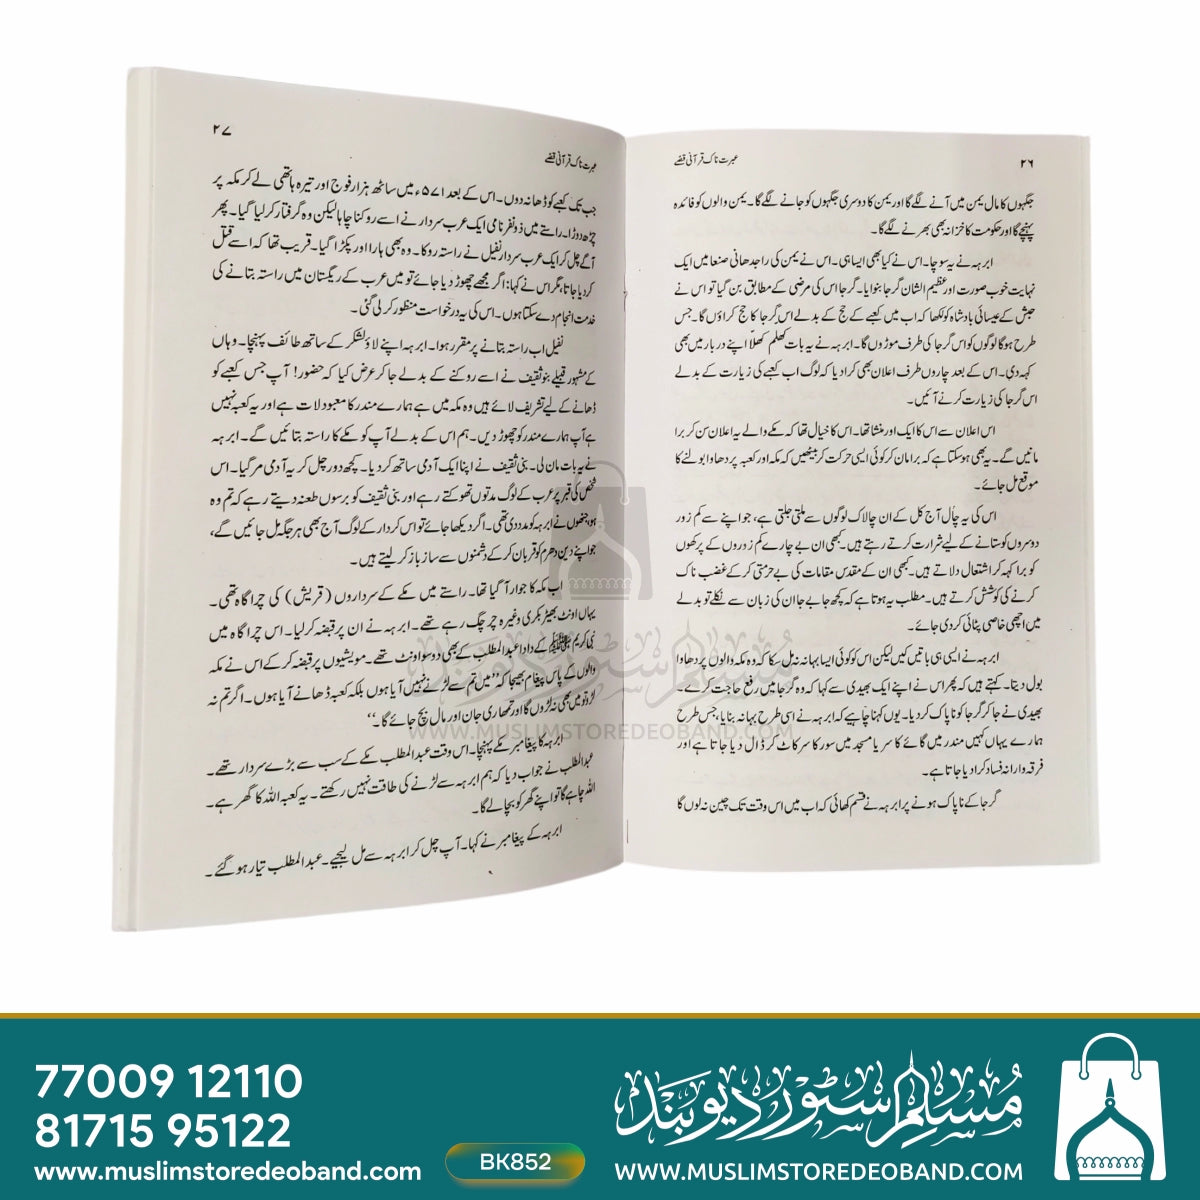 ۲۶
عبرت ناک قرآنی قصے
جگہوں کا مال یمن میں آنے لگے گا اور یمن کا دوسری جگہوں کو جانے لگے گا۔ یمن والوں کو فائدہ
پہنچے گا اور حکومت کا خزانہ بھی بھرنے لگے گا۔
ابرہہ نے یہ سوچا۔ اس نے کیا بھی ایسا ہی۔ اس نے یمن کی راجدھانی صنعا میں ایک
نہایت خوب صورت اور عظیم الشان گرجا بنوایا۔ گرجا اس کی مرضی کے مطابق بن گیا تو اس نے
حبش کے عیسائی بادشاہ کو لکھا کہ اب میں کعبے کے حج کے بدلے اس گرجا کا حج کراؤں گا۔ جس
طرح ہوگا لوگوں کو اس گرجا کی طرف موڑوں گا۔ ابرہہ نے یہ بات کھلم کھلا اپنے دربار میں بھی
کہہ دی۔ اس کے بعد چاروں طرف اعلان بھی کرا دیا کہ لوگ اب کعبے کی زیارت کے بدلے
اس گرجا کی زیارت کرنے آئیں۔
اس اعلان سے اس کا ایک اور منشا تھا۔ اس کا خیال تھا کہ مکے والے یہ اعلان سن کر برا
مانیں گے۔ یہ بھی ہوسکتا ہے کہ برا مان کر کوئی ایسی حرکت کر بیٹھیں کہ مکہ اور کعبہ پر دھاوا بولنے کا
موقع مل جائے۔
اس کی یہ چال آج کل کے ان چالاک لوگوں سے ملتی جلتی ہے، جو اپنے سے کم زور
دوسروں کو ستانے کے لیے شرارت کرتے رہتے ہیں۔ کبھی ان بے چارے کم زوروں کے پرکھوں
کو برا کہہ کر اشتعال دلاتے ہیں۔ کبھی ان کے مقدس مقامات کی بے حرمتی کر کے غضب ناک
کرنے کی کوشش کرتے ہیں۔ مطلب یہ ہوتا ہے کہ کچھ جا بے جا ان کی زبان سے نکلے تو بدلے
میں اچھی خاصی پٹائی کر دی جائے۔
ابرہہ نے ایسی ہی باتیں کیں لیکن اس کو کوئی ایسا بہانہ نہ مل سکا کہ وہ مکہ والوں پر دھاوا
بول دیتا۔ کہتے ہیں کہ پھر اس نے اپنے ایک بھیدی سے کہا کہ وہ گرجا میں رفع حاجت کرے۔
بھیدی نے جا کر گرجا کو ناپاک کر دیا۔ یوں کہنا چاہیے کہ ابرہہ نے اسی طرح بہانہ بنایا، جس طرح
ہمارے یہاں کہیں مندر میں گائے کا سر یا مسجد میں سور کا سر کاٹ کر ڈال دیا جاتا ہے اور
فرقہ وارانہ فساد کرا دیا جاتا ہے۔
گرجا کے ناپاک ہونے پر ابرہہ نے قسم کھائی کہ اب میں اس وقت تک چین نہ لوں گا
۲۷
عبرت ناک قرآنی قصے
جب تک کعبے کو ڈھا نہ دوں۔ اس کے بعد ۵۷۱ء میں ساٹھ ہزار فوج اور تیرہ ہاتھی لے کر مکہ پر
چڑھ دوڑا۔ راستے میں ذونفر نامی ایک عرب سردار نے اسے روکنا چاہا لیکن وہ گرفتار کر لیا گیا۔ پھر
آگے چل کر ایک عرب سردار نفیل نے راستہ روکا۔ وہ بھی ہارا اور پکڑا گیا۔ قریب تھا کہ اسے قتل
کر دیا جاتا، مگر اس نے کہا: اگر مجھے چھوڑ دیا جائے تو میں عرب کے ریگستان میں راستہ بتانے کی
خدمت انجام دے سکتا ہوں۔ اس کی یہ درخواست منظور کر لی گئی۔
نفیل اب راستہ بتانے پر مقرر ہوا۔ ابرہہ اپنے لاؤ لشکر کے ساتھ طائف پہنچا۔ وہاں
کے مشہور قبیلے بنو ثقیف نے اسے روکنے کے بدلے جا کر عرض کیا کہ حضور! آپ جس کعبے کو
ڈھانے کے لیے تشریف لائے ہیں وہ مکہ میں ہے ہمارے مندر کا معبود لات ہے اور یہ کعبہ نہیں
ہے آپ ہمارے مندر کو چھوڑ دیں۔ ہم اس کے بدلے آپ کو مکے کا راستہ بتائیں گے۔ ابرہہ
نے یہ بات مان لی۔ بنی ثقیف نے اپنا ایک آدمی ساتھ کر دیا۔ کچھ دور چل کر یہ آدمی مر گیا۔ اس
شخص کی قبر پر عرب کے لوگ مدتوں تھوکتے رہے اور بنی ثقیف کو برسوں طعنہ دیتے رہے کہ تم وہ
ہو، جنھوں نے ابرہہ کو مدد دی تھی۔ اگر دیکھا جائے تو اس کردار کے لوگ آج بھی ہر جگہ مل جائیں گے،
جو اپنے دین دھرم کو قربان کر کے دشمنوں سے ساز باز کر لیتے ہیں۔
اب مکہ کا جوار آ گیا تھا۔ راستے میں مکے کے سرداروں (قریش) کی چراگاہ تھی۔
یہاں اونٹ بھیڑ بکری وغیرہ چر چگ رہے تھے۔ ابرہہ نے ان پر قبضہ کر لیا۔ اس چراگاہ میں
نبی کریم ﷺ کے دادا عبدالمطلب کے بھی دو سو اونٹ تھے۔ مویشیوں پر قبضہ کر کے اس نے مکہ
والوں کے پاس پیغام بھیجا کہ ’’میں تم سے لڑنے نہیں آیا ہوں بلکہ کعبہ ڈھانے آیا ہوں۔ اگر تم نہ
لڑو تو میں بھی نہ لڑوں گا اور تمھاری جان اور مال بچ جائے گا۔‘‘
ابرہہ کا پیغامبر مکے پہنچا۔ اس وقت عبدالمطلب مکے کے سب سے بڑے سردار تھے۔
عبدالمطلب نے جواب دیا کہ ہم ابرہہ سے لڑنے کی طاقت نہیں رکھتے۔ یہ کعبہ اللہ کا گھر ہے۔
اللہ چاہے گا تو اپنے گھر کو بچا لے گا۔
ابرہہ کے پیغامبر نے کہا۔ آپ چل کر ابرہہ سے مل لیجیے۔ عبدالمطلب تیار ہو گئے۔
مسلم سٹور دیوبند
WWW.MUSLIMSTOREDEOBAND.COM
77009 12110
81715 95122
www.muslimstoredeoband.com
BK852
مسلم سٹور دیوبند
WWW.MUSLIMSTOREDEOBAND.COM